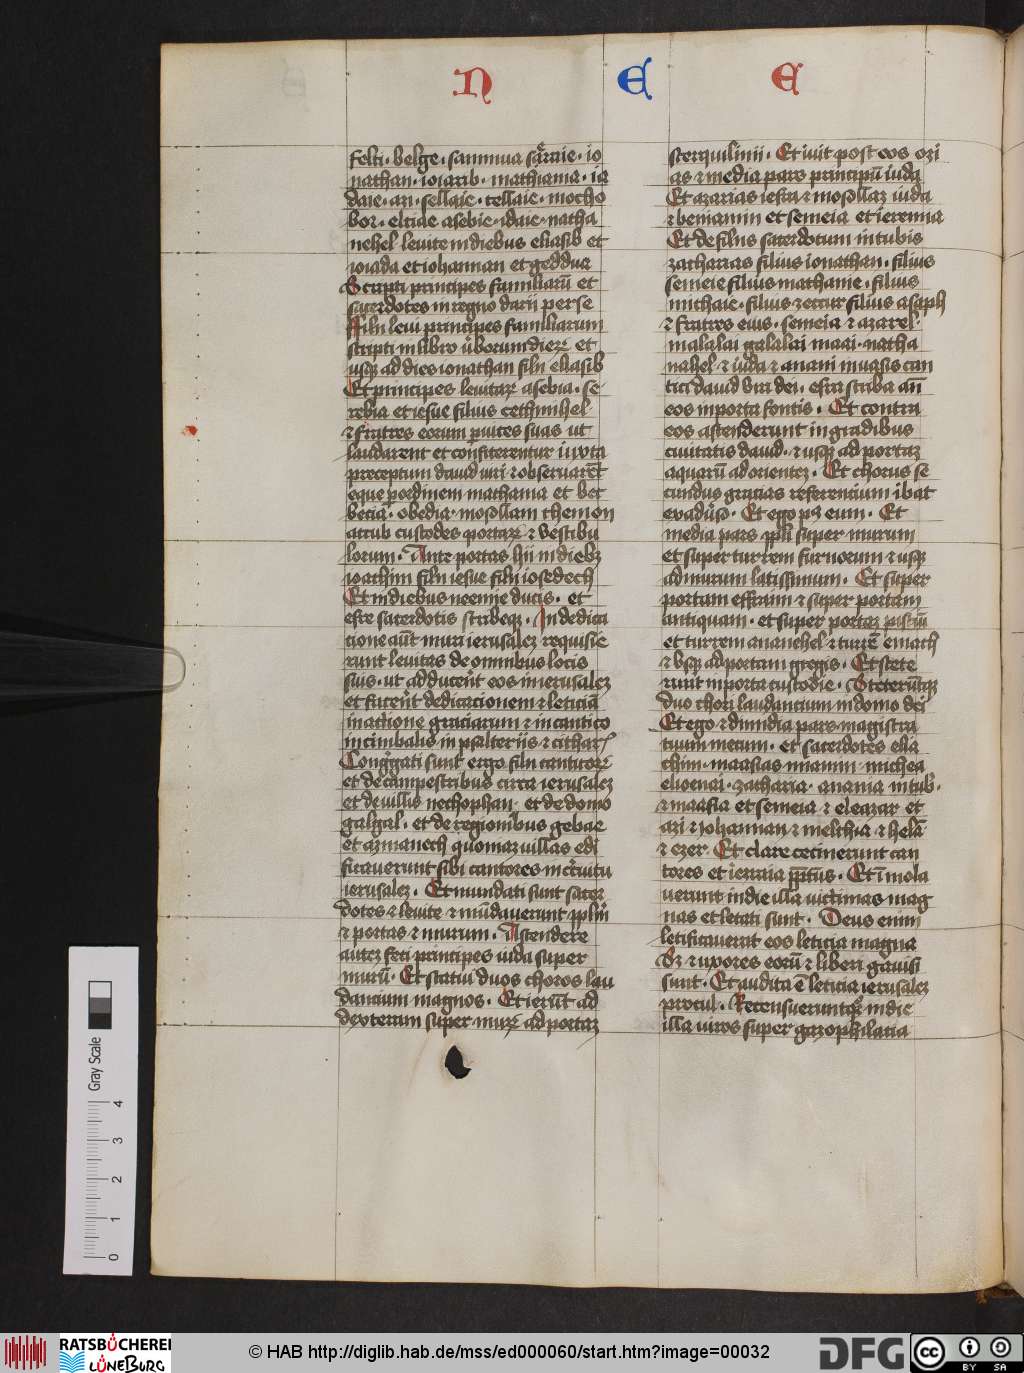 N E E
felti · belge · sammua semeie · io
nathan · ioiarib · mathiania · ia
daie · azi · sellaie · cellaie · mocho
bor · elciae asebie · idaie · natha
nehel levite in diebus eliasib et
ioiada et iohannan et geddua
Scripti principes familiarū et
sacerdotes in regno darii perse
Filii levi principes familiarum
scripti in libro ũborum dieꝝ et
usqꝫ ad dies ionathan filii eliasib
Et principes levitaꝝ asebia · se
rebia et iesue filius cethmihel
⁊ fratres eorum p vices suas ut
laudarent et confiterentur iuxta
preceptum david viri ⁊ observarēt
eque p oedinem mathania et bec
becia · obedia · mosollam thelmon
accub custodes portaꝝ ⁊ vestibu
lorum · Ante portas hii in diebꝫ
ioachim filii iesue filii iosedech
Et in diebus neemie ducis · et
esre sacerdotis scribeqꝫ · In dedica
cione aūt muri ierusaleꝫ requisie
runt levitas de omnibus locis
suis · ut adducerēt eos in ierusaleꝫ
et facerēt dedicacionem ⁊ leticia
in actione graciarum ⁊ in cantico
in cimbalis in psalteriis ⁊ citharꝭ
Congͥgati sunt ergo filii cantorꝝ
et de campestribus circa ierusaleꝫ
et de villis nechophan · et de domo
galgal · et de regionibus gebae
et azmaneth quoniaꝫ villas edi
ficaverunt sibi cantores in circuitu
ierusaleꝫ · Et mundati sunt sacer
dotes ⁊ levite ⁊ mūdaverunt pplm
⁊ portas ⁊ murum · Ascendere
auteꝫ feci principes iuda super
murū · Et statui duos choros lau
dancium magnos · Et ierūt ad
dexteram super muꝝ ad portaꝫ
sterquilinii · Et ivit post eos ozi
as ⁊ media pars principū iuda
Et azarias iesra ⁊ mosollaꝫ iuda
⁊ beniamin et semeia et ieremia
Et de filiis sacerdotum in tubis
zacharias filius ionathan · filius
semeie filius mathanie · filius
michaie · filius zeccur filius asaph
⁊ fratres eius · semeia ⁊ azarel
malalai galalai maai · natha
nahel · ⁊ iuda ⁊ anani in vasis can
tici david viri dei · esra scriba añ
eos in porta fontis · Et contra
eos ascenderunt in gradibus
civitatis david · ⁊ usqꝫ ad portaꝫ
aquarū ad orienteꝫ · Et chorus se
cundus gracias referencium ibat
ex adũso · Et ego pꝰ eum · Et
media pars ppli super murum
et super turrem furnorum ⁊ usqꝫ
ad murum latissimum · Et super
portam effraim ⁊ super portam
antiquam · et super portaꝫ pisciū
et turrem ananehel ⁊ turrē emath
⁊ usqꝫ ad portam gregis · Et stete
runt in porta custodie · Steterūtqꝫ
duo chori laudancium in domo dei
Et ego ⁊ dimidia pars magistra
tuum mecum · et sacerdotes elia
chim · maasias miamin · michea
elioenai · zacharia · anania in tubꝭ ·
⁊ maasia et semeia ⁊ eleazar et
azi ⁊ iohannan ⁊ melchia ⁊ helā
⁊ ezer Et clare cecinerunt can
tores et iezraia ppitus · Et īmola
verunt in die illa victimas mag
nas et letati sunt · Deus enim
letificaverat eos leticia magna
Sꝫ ⁊ uxores eorū ⁊ liberi gavisi
sunt · Et audita ē leticia ierusaleꝫ
procul · Recensueruntqꝫ in die
illa viros super gazophilacia
Gray Scale
4
3
2
1
0
RATSBÜCHEREI LÜNEBURG
© HAB http://diglib.hab.de/mss/ed000060/start.htm?image=00032
DFG
cc BY SA